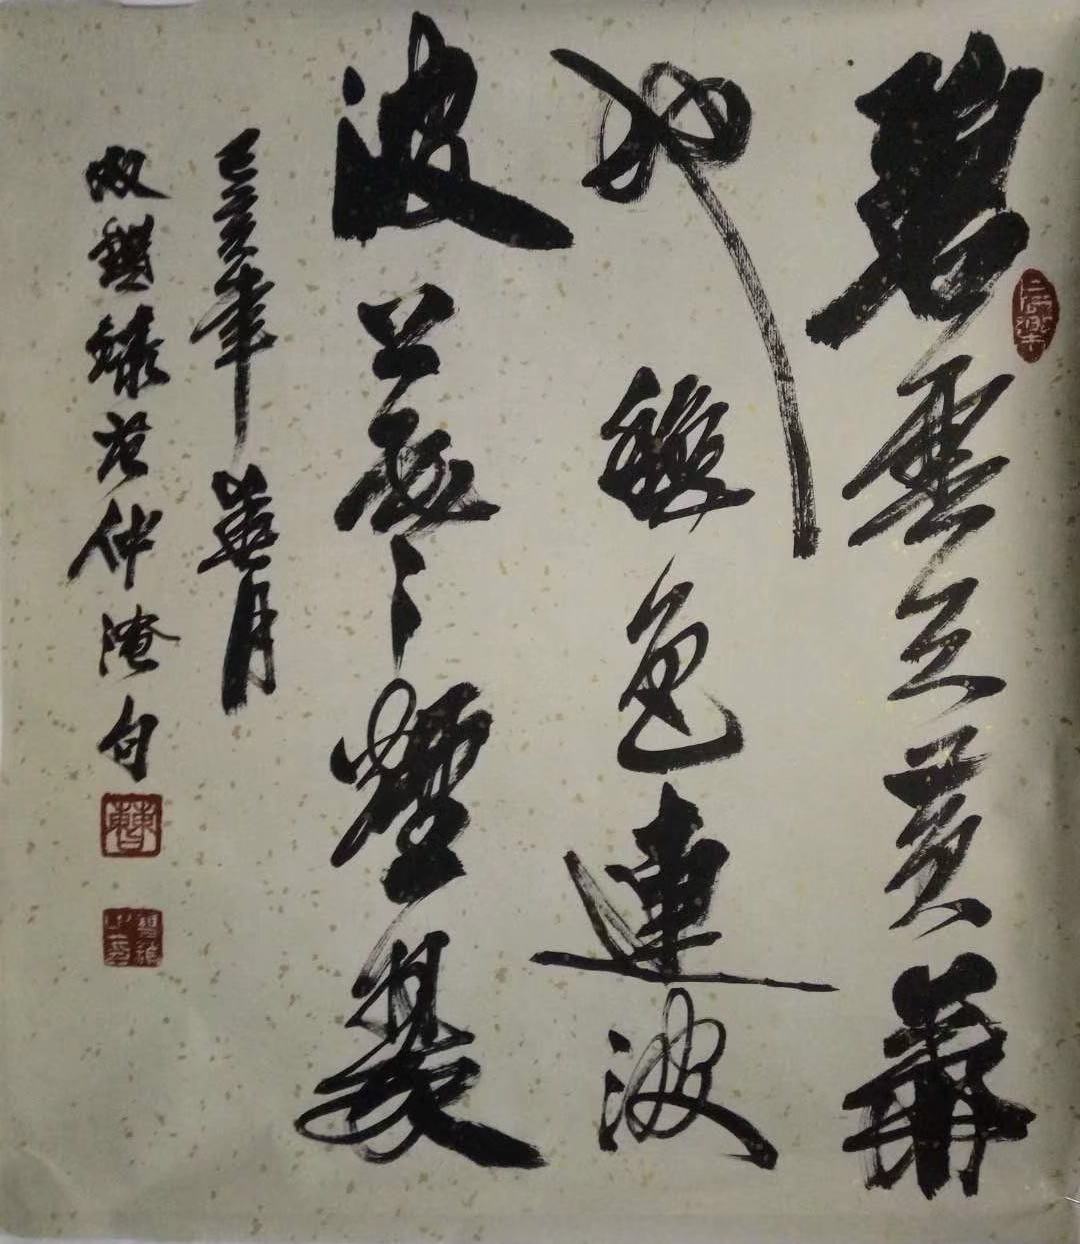 碧雲天黃葉
地秋色連波
波上寒煙翠
己亥年月
双錄范仲淹句
曹